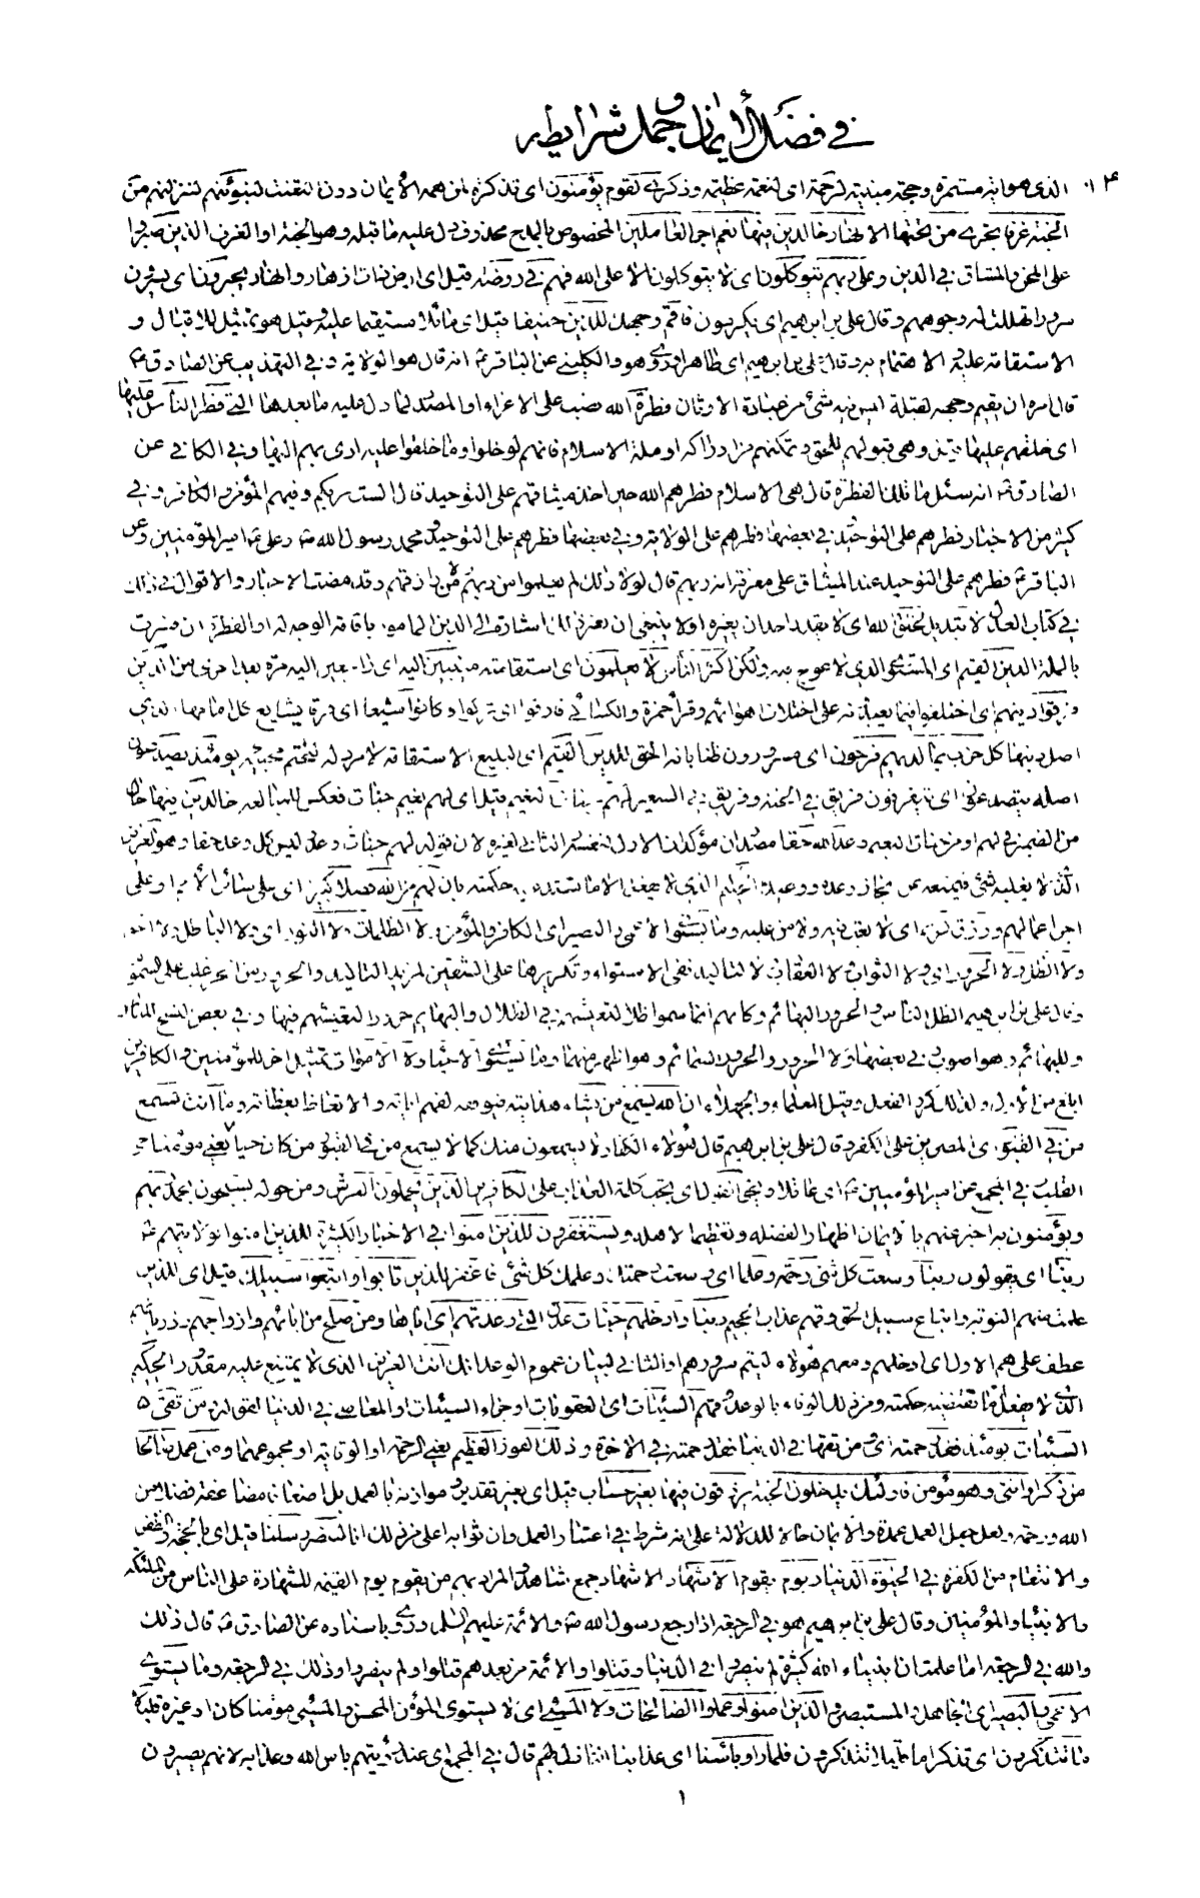 في فضل الايمان وجمل شرايطه
١٠٤
الذي هو اية مستمرة وحجة مبينة لرحمة اى لنعمة عظيمة وذكرى لقوم يؤمنون اى تذكرة لمن همه الايمان دون التعنت لنبوئنهم لننزلنهم من
الجنة غرفا تجرى من تحتها الانهار خالدين فيها نعم اجر العاملين المخصوص بالمدح محذوف دل عليه ما قبله وهو الجنة او الغرف الذين صبروا
على المحن والمشاق في الدين وعلى ربهم يتوكلون اى لا يتوكلون الا على الله فهم في روضة قيل اى ارض ذات ازهار وانهار يحبرون اى يسرون
سرورا تهللت له وجوههم وقال على بن ابراهيم اى يكرمون فاقم وجهك للدين حنيفا قيل اى مائلا مستقيما عليه وقيل هو تمثيل للاقبال و
الاستقامة عليه والاهتمام به وقال على بن ابراهيم اى طاهرا وروى هو والكلينى عن الباقر ع انه قال هو الولاية و في التهذيب عن الصادق ع
قال امره ان يقيم وجهه للقبلة ليس فيه شئ من عبادة الاوثان فطرة الله نصب على الاغراء او المصدر لما دل عليه ما بعدها التى فطر الناس عليها
اى خلقهم عليها وهى قبولهم للحق وتمكنهم من ادراكه او ملة الاسلام فانهم لو خلوا وما خلقوا عليه ادى بهم اليها وفي الكافي عن
الصادق ع انه سئل ما تلك الفطرة قال هى الاسلام فطرهم الله حين اخذ ميثاقهم على التوحيد قال الست بربكم وفيهم المؤمن والكافر وفي
كثير من الاخبار فطرهم على التوحيد وفي بعضها فطرهم على الولاية وفي بعضها فطرهم على التوحيد ومحمد رسول الله ص وعلى ع امير المؤمنين وعن
الباقر ع فطرهم على التوحيد عند الميثاق على معرفة انه ربهم قال لولا ذلك لم يعلموا من ربهم ولا من رازقهم وقد مضت الاخبار والاقوال في ذلك
في كتاب العدل لا تبديل لخلق الله اى لا يقدر احد ان يغيره او لا ينبغى ان يغير ذلك اشارة الى الدين المامور باقامة الوجه له او الفطرة ان فسرت
بالملة الدين القيم اى المستوى الذي لا عوج فيه ولكن اكثر الناس لا يعلمون اى استقامته منيبين اليه اى راجعين اليه مرة بعد اخرى من الذين
فرقوا دينهم اى اختلفوا فيما يعبدونه على اختلاف اهوائهم وقرأ حمزة والكسائى فارقوا اى تركوا وكانوا شيعا اى فرقا يشايع كل امامها الذي
اصل دينها كل حزب بما لديهم فرحون اى مسرورون ظنا بانه الحق للدين القيم اى البليغ الاستقامة لا مرد له لتحتم مجيئه يومئذ يصدعون
اصله يتصدعون اى يتفرقون فريق في الجنة وفريق في السعير لهم جنات النعيم قيل اى لهم نعيم جنات فعكس للمبالغة خالدين فيها حال
من الضمير في لهم او من جنات النعيم وعد الله حقا مصدران مؤكدان الاول لنفسه والثانى لغيره لان قوله لهم جنات وعد وليس كل وعد حقا وهو العزيز
الذي لا يغلبه شئ فيمنعه عن انجاز وعده ووعيده الحكيم الذي لا يفعل الا ما تستدعيه حكمته بان لهم من الله فضلا كبيرا اى على سائر الامم او على
اجر اعمالهم ورزق كريم اى لا تعب فيه ولا من عليه وما يستوى الاعمى والبصير اى الكافر والمؤمن ولا الظلمات ولا النور اى ولا الباطل ولا الحق
ولا الظل ولا الحرور اى ولا الثواب ولا العقاب ولا لتاكيد نفى الاستواء وتكريرها على الشقين لمزيد التاكيد والحرور من الحر غلب على السموم
وقال على بن ابراهيم الظل للناس والحرور للبهائم وكانهم انما سموا ظلا لتعيشهم في الظلال والبهائم حرورا لتعيشهم فيها وفي بعض النسخ للناس
وللبهائم وهو اصوب وفي بعضها ولا الحرور والحرور السمائم وهو اظهر منهما وما يستوى الاحياء ولا الاموات تمثيل اخر للمؤمنين والكافرين
ابلغ من الاول ولذلك كرر الفعل وقيل للعلماء والجهلاء ان الله يسمع من يشاء هدايته فيوفقه لفهم اياته والاتعاظ بعظاته وما انت بمسمع
من في القبور اى المصرين على الكفر وقال على بن ابراهيم قال هؤلاء الكفار لا يسمعون منك كما لا يسمع من في القبور من كان حيا يعنى مؤمنا حى
القلب وفي المجمع عن امير المؤمنين ع اى عاقلا ويحق القول اى يجب كلمة العذاب على الكافرين الذين يحملون العرش ومن حوله يسبحون بحمد ربهم
ويؤمنون به اخبر عنهم بالايمان اظهارا لفضله وتعظيما لاهله ويستغفرون للذين امنوا في الاخبار الكثيرة للذين امنوا بولايتهم ع
ربنا اى يقولون ربنا وسعت كل شئ رحمة وعلما اى وسعت رحمتك وعلمك كل شئ فاغفر للذين تابوا واتبعوا سبيلك قيل اى للذين
علمت منهم التوبة واتباع سبيل الحق وقهم عذاب الجحيم ربنا وادخلهم جنات عدن التى وعدتهم اى اياها ومن صلح من ابائهم وازواجهم وذرياتهم
عطف على هم الاول اى ادخلهم ومعهم هؤلاء ليتم سرورهم او الثانى لبيان عموم الوعد انك انت العزيز الذى لا يمتنع عليه مقدور الحكيم
الذى لا يفعل الا ما تقتضيه حكمته ومن ذلك الوفاء بالوعد وقهم السيئات اى العقوبات او جزاء السيئات او المعاصى في الدنيا لقوله ومن تق
السيئات يومئذ فقد رحمته اى ومن تقها في الدنيا فقد رحمته في الاخرة وذلك هو الفوز العظيم يعنى الرحمة او الوقاية او مجموعهما ومن عمل صالحا
من ذكر او انثى وهو مؤمن فاولئك يدخلون الجنة يرزقون فيها بغير حساب قيل اى بغير تقدير وموازنة بالعمل بل اضعافا مضاعفة فضلا من
الله ورحمة ولعل جعل العمل عمدة والايمان حالا للدلالة على انه شرط في اعتبار العمل وان ثوابه اعلى من ذلك انا لننصر رسلنا قيل اى بالحجة والظفر
والانتقام من الكفرة في الحيوة الدنيا ويوم يقوم الاشهاد الاشهاد جمع شاهد والمراد بهم من يقوم يوم القيمة للشهادة على الناس من الملئكة
والانبياء والمؤمنين وقال على بن ابراهيم هو في الرجعة اذا رجع رسول الله ص والائمة عليهم السلم وروى باسناده عن الصادق ع قال ذلك
والله في الرجعة اما علمت ان انبياء الله كثيرة لم ينصروا في الدنيا وقتلوا والائمة من بعدهم قتلوا ولم ينصروا وذلك في الرجعة وما يستوى
الاعمى والبصير اى الجاهل والمستبصر والذين امنوا وعملوا الصالحات ولا المسئ اى لا يستوى المؤمن المحسن والمسئ مؤمنا كان او غيره قليلا
ما تتذكرون اى تذكرا ما قليلا تتذكرون فلما راوا باسنا اى عذابنا النازل بهم قال في المجمع اى عند رؤيتهم باس الله وعذابه لانهم يصيرون
١